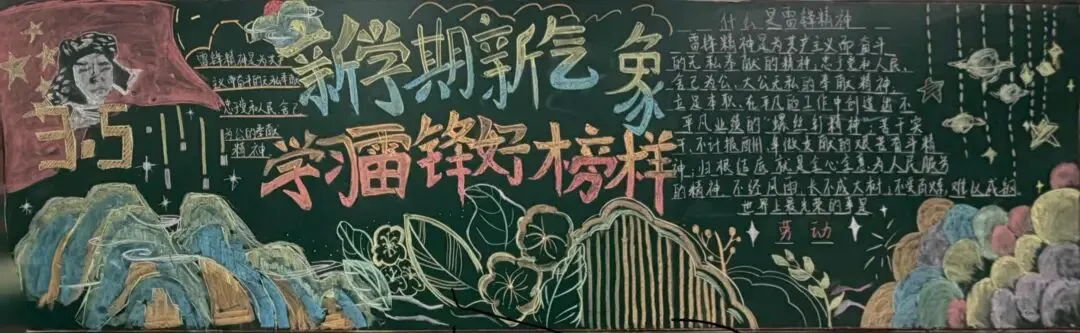 新学期新气象
学习雷锋好榜样
3.5
雷锋精神是为共产
主义而奋斗的无私奉献
忠于党和人民 舍己
为公的奉献
精神
什么是雷锋精神
雷锋精神是为共产主义而奋斗
的无私奉献的精神,忠于党和人民、
舍己为公、大公无私的奉献精神,
立足本职、在平凡的工作中创造出不
平凡业绩的“螺丝钉精神”;苦干实
干、不计报酬、争做贡献的艰苦奋斗精
神;归根结底就是全心全意为人民服务
的精神。不经风雨,长不成大树;不受百炼,难以成钢
世界上最光荣的事是
劳动